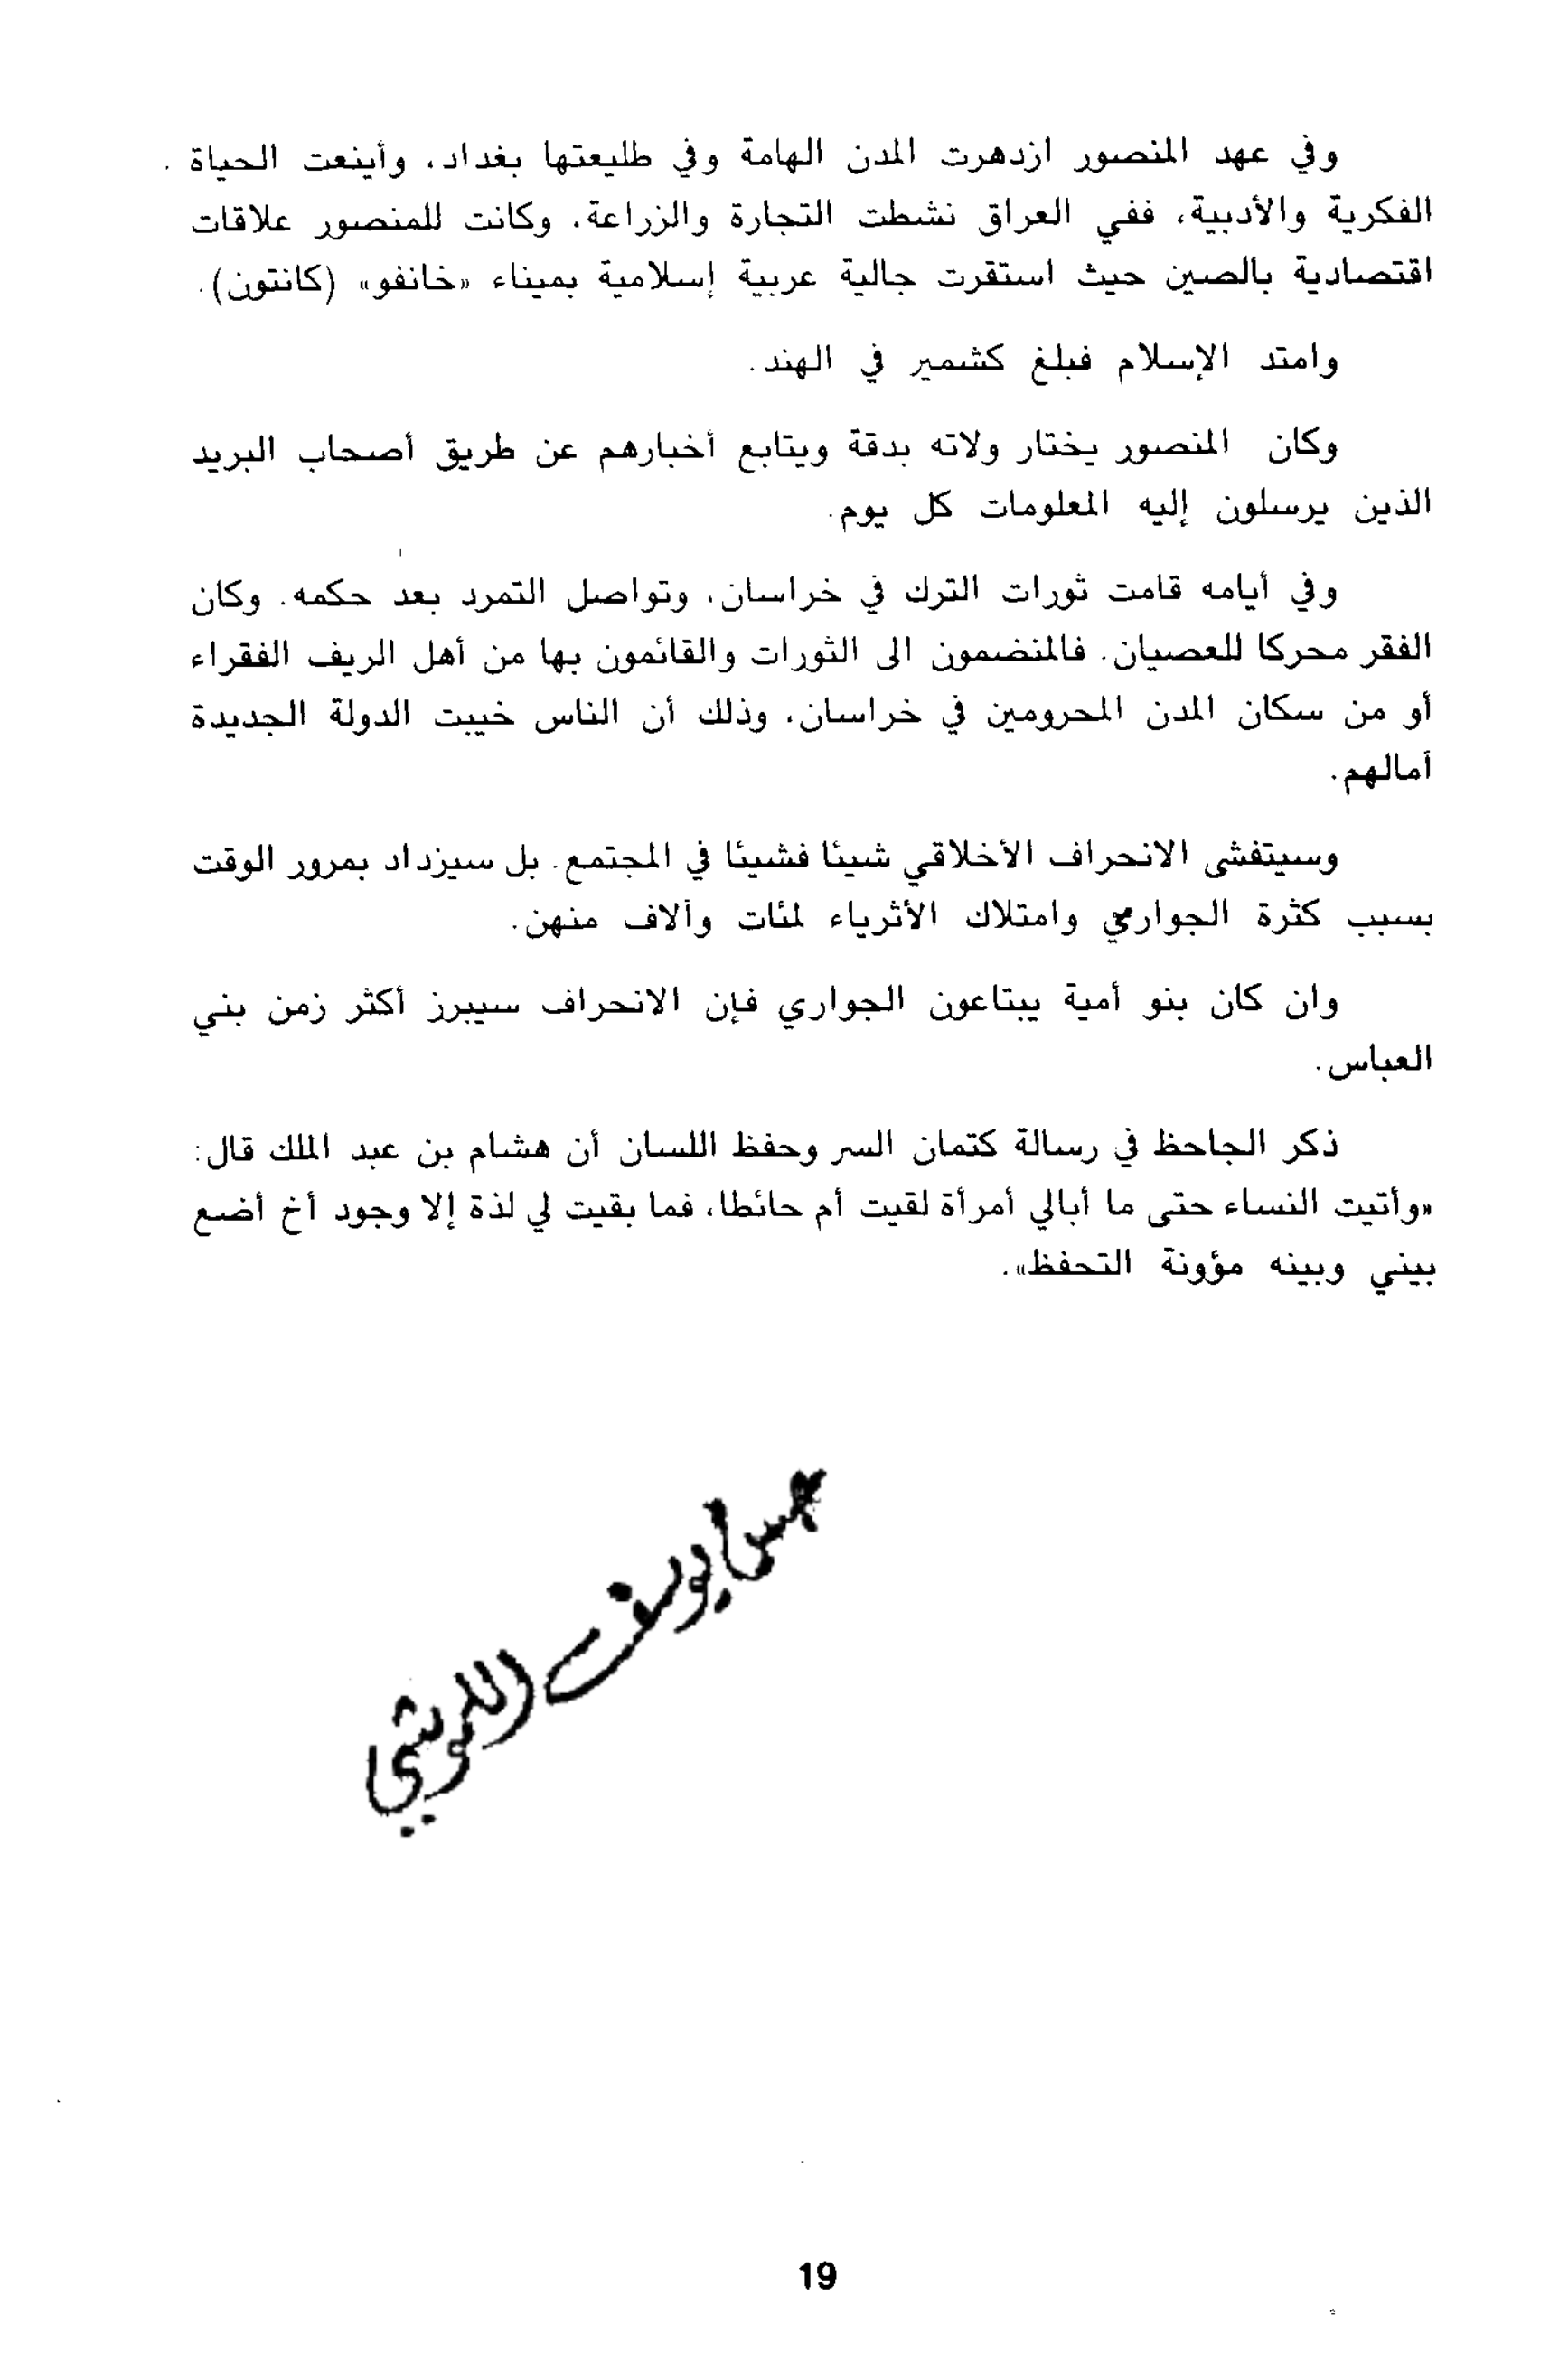 وفي عهد المنصور ازدهرت المدن الهامة وفي طليعتها بغداد، وأينعت الحياة
الفكرية والأدبية، ففي العراق نشطت التجارة والزراعة، وكانت للمنصور علاقات
اقتصادية بالصين حيث استقرت جالية عربية إسلامية بميناء «خانفو» (كانتون).
وامتد الإسلام فبلغ كشمير في الهند.
وكان المنصور يختار ولاته بدقة ويتابع أخبارهم عن طريق أصحاب البريد
الذين يرسلون إليه المعلومات كل يوم.
وفي أيامه قامت ثورات الترك في خراسان، وتواصل التمرد بعد حكمه. وكان
الفقر محركا للعصيان. فالمنضمون الى الثورات والقائمون بها من أهل الريف الفقراء
أو من سكان المدن المحرومين في خراسان، وذلك أن الناس خيبت الدولة الجديدة
أمالهم.
وسيتفشى الانحراف الأخلاقي شيئا فشيئا في المجتمع. بل سيزداد بمرور الوقت
بسبب كثرة الجواري وامتلاك الأثرياء لمئات وألاف منهن.
وان كان بنو أمية يبتاعون الجواري فإن الانحراف سيبرز أكثر زمن بني
العباس.
ذكر الجاحظ في رسالة كتمان السر وحفظ اللسان أن هشام بن عبد الملك قال:
«وأتيت النساء حتى ما أبالي أمرأة لقيت أم حائطا، فما بقيت لي لذة إلا وجود أخ أضع
بيني وبينه مؤونة التحفظ».
يوسف
19